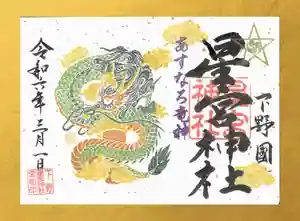 下野國
星宮神社
あすなろ竜神
令和六年三月一日